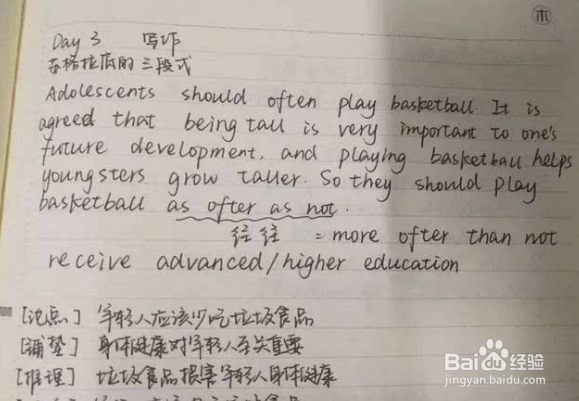 木
Day 3 写作
苏格拉底的三段式
Adolescents should often play basketball. It is
agreed that being tall is very important to one's
future development, and playing basketball helps
youngsters grow taller. So they should play
basketball as often as not.
经往 = more often than not
receive advanced/higher education
[论点] 年轻人应该少吃垃圾食品
[铺垫] 身体健康对年轻人至关重要
[推理] 垃圾食品损害年轻人身体健康
Bai百度经验
jingyan.baidu.com